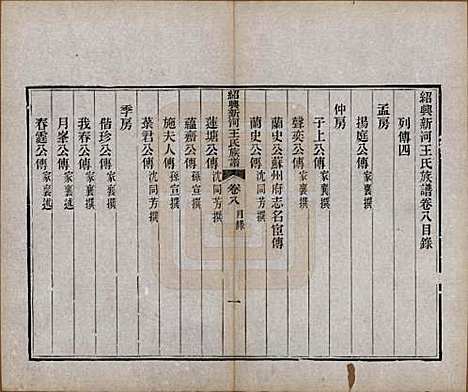 紹興新河王氏族譜卷八目錄
列傳四
孟房
揚庭公傳家襄撰
仲房
子上公傳家襄撰
聲奕公傳家襄撰
蘭史公蘇州府志名宦傳
蘭史公傳沈同芳撰
紹興新河王氏族譜 卷八 目錄 一
蓮塘公傳沈同芳撰
蘊齋公傳孫宣撰
施夫人傳孫宣撰
葉君公傳沈同芳撰
季房
偕珍公傳家襄撰
我春公傳家襄撰
月峯公傳家襄述
春霆公傳家襄述